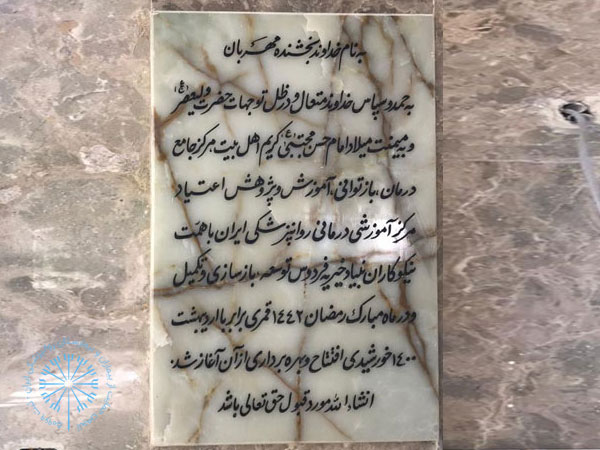 به نام خداوند بخشنده مهربان
به حمد و سپاس خداوند متعال و در ظل توجهات حضرت ولیعصر (عج)
و به میمنت میلاد امام حسن مجتبی (ع) کریم اهل بیت مرکز جامع
درمان، بازتوانی، آموزش و پژوهش اعتیاد
مرکز آموزشی درمانی روانپزشکی ایران با همت
نیکوکاران بنیاد خیریه فردوس توسعه، بازسازی و تکمیل
و در ماه مبارک رمضان ۱۴۴۲ قمری برابر با اردیبهشت
۱۴۰۰ خورشیدی افتتاح و بهره برداری از آن آغاز شد.
انشاء الله مورد قبول حق تعالی باشد